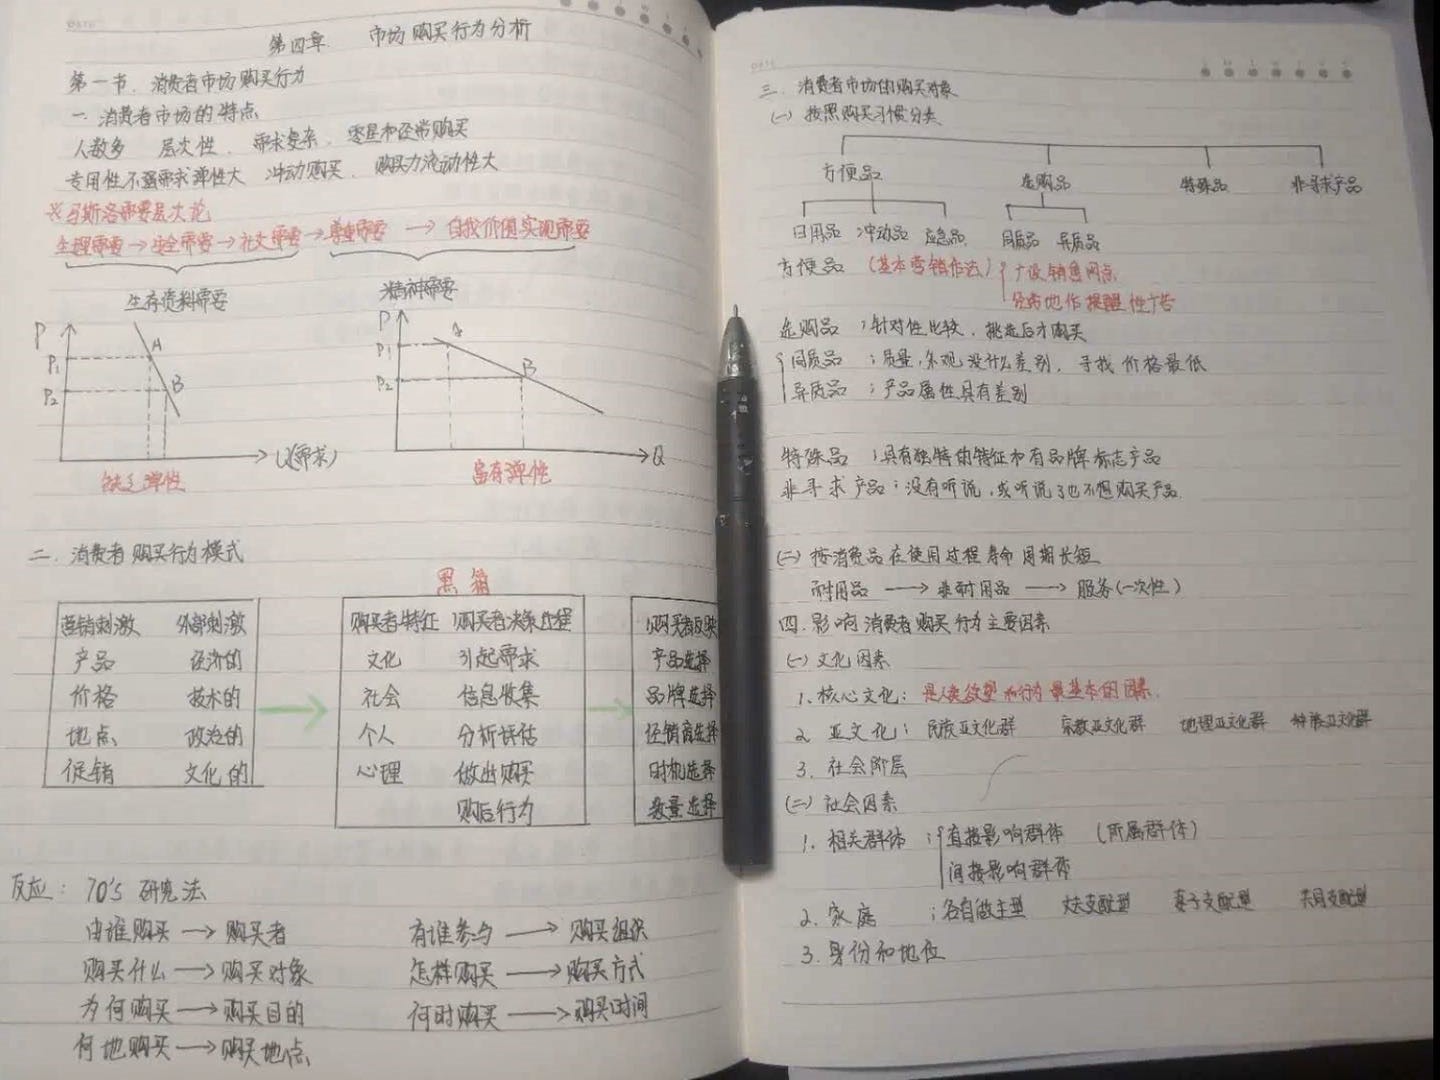 第四章 市场购买行为分析
第一节. 消费者市场购买行为
一. 消费者市场的特点
人数多 层次性. 需求复杂. 零星和经常购买
专用性不强需求弹性大 冲动购买. 购买力流动性大
※马斯洛需要层次论
生理需要→安全需要→社交需要→尊重需要 → 自我价值实现需要
生存资料需要
精神需要
P
P1
P2
A
B
Q(需求)
缺乏弹性
P
P1
P2
A
B
Q
富有弹性
二. 消费者购买行为模式
黑箱
营销刺激 外部刺激
产品 经济的
价格 技术的
地点 政治的
促销 文化的
购买者特征 购买者决策过程
文化 引起需求
社会 信息收集
个人 分析评估
心理 做出购买
购后行为
购买者反映
产品选择
品牌选择
经销商选择
时机选择
数量选择
反应: 7O's 研究法
由谁购买 → 购买者
购买什么 → 购买对象
为何购买 → 购买目的
何地购买 → 购买地点
有谁参与 → 购买组织
怎样购买 → 购买方式
何时购买 → 购买时间
DATE
三. 消费者市场的购买对象
(一) 按照购买习惯分类
方便品 选购品 特殊品 非寻求产品
日用品 冲动品 应急品 同质品 异质品
方便品 (基本营销作法) 广设销售网点
分布地作提醒性广告
选购品 : 针对性比较. 挑选后才购买
同质品 : 质量.外观没什么差别. 寻找价格最低
异质品 : 产品属性具有差别
特殊品 : 具有独特的特征和有品牌标志产品
非寻求产品 : 没有听说.或听说了也不想购买产品.
(二) 按消费品在使用过程寿命周期长短
耐用品 → 非耐用品 → 服务(一次性)
四. 影响消费者购买行为主要因素
(一) 文化因素
1. 核心文化: 是人类欲望和行为最基本的因素.
2. 亚文化: 民族亚文化群 宗教亚文化群 地理亚文化群 种族亚文化群
3. 社会阶层
(二) 社会因素
1. 相关群体 : 直接影响群体 (所属群体)
间接影响群体
2. 家庭 : 各自做主型 丈夫支配型 妻子支配型 共同支配型
3. 身份和地位